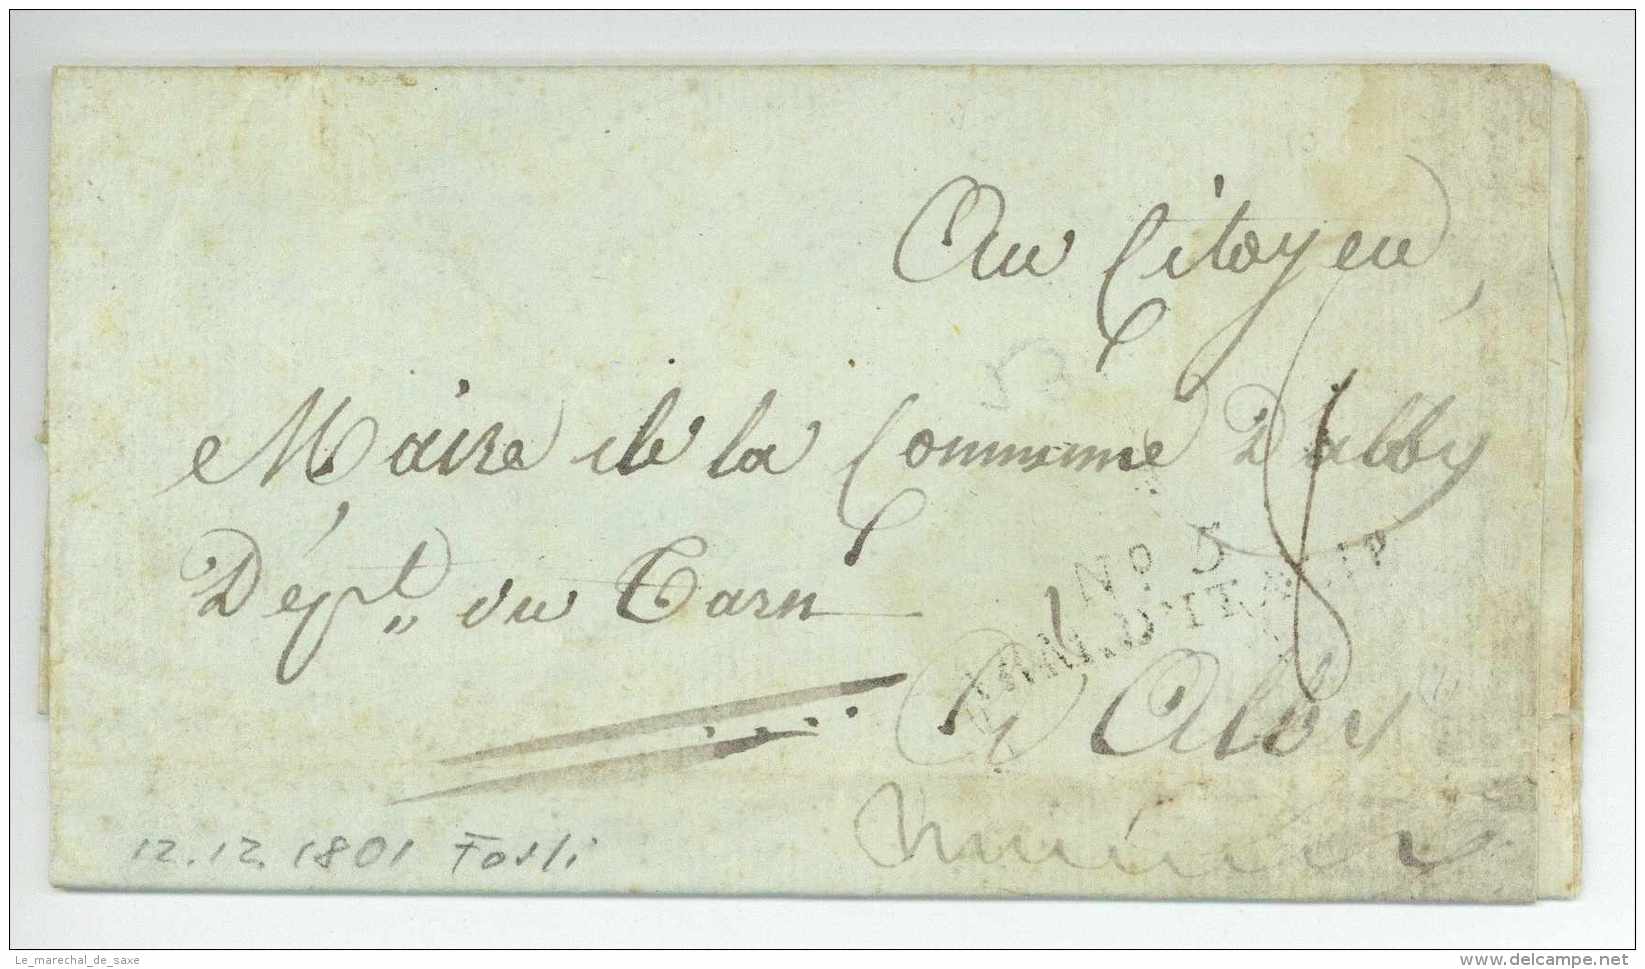 Au Citoyen,
Maire de la Commune D'alby
Dép.t du Tarn
No 5
ARM. D'ITALIE
à Alby
12.12.1801 Forli
Le_marechal_de_saxe
delcampe.net